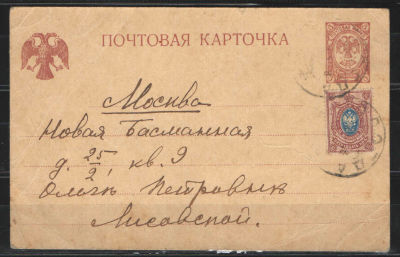 ПОЧТОВАЯ КАРТОЧКА
Москва
Новая Басманная
д. 25/2, кв. 9
Ольге Петровне
Лисовской.